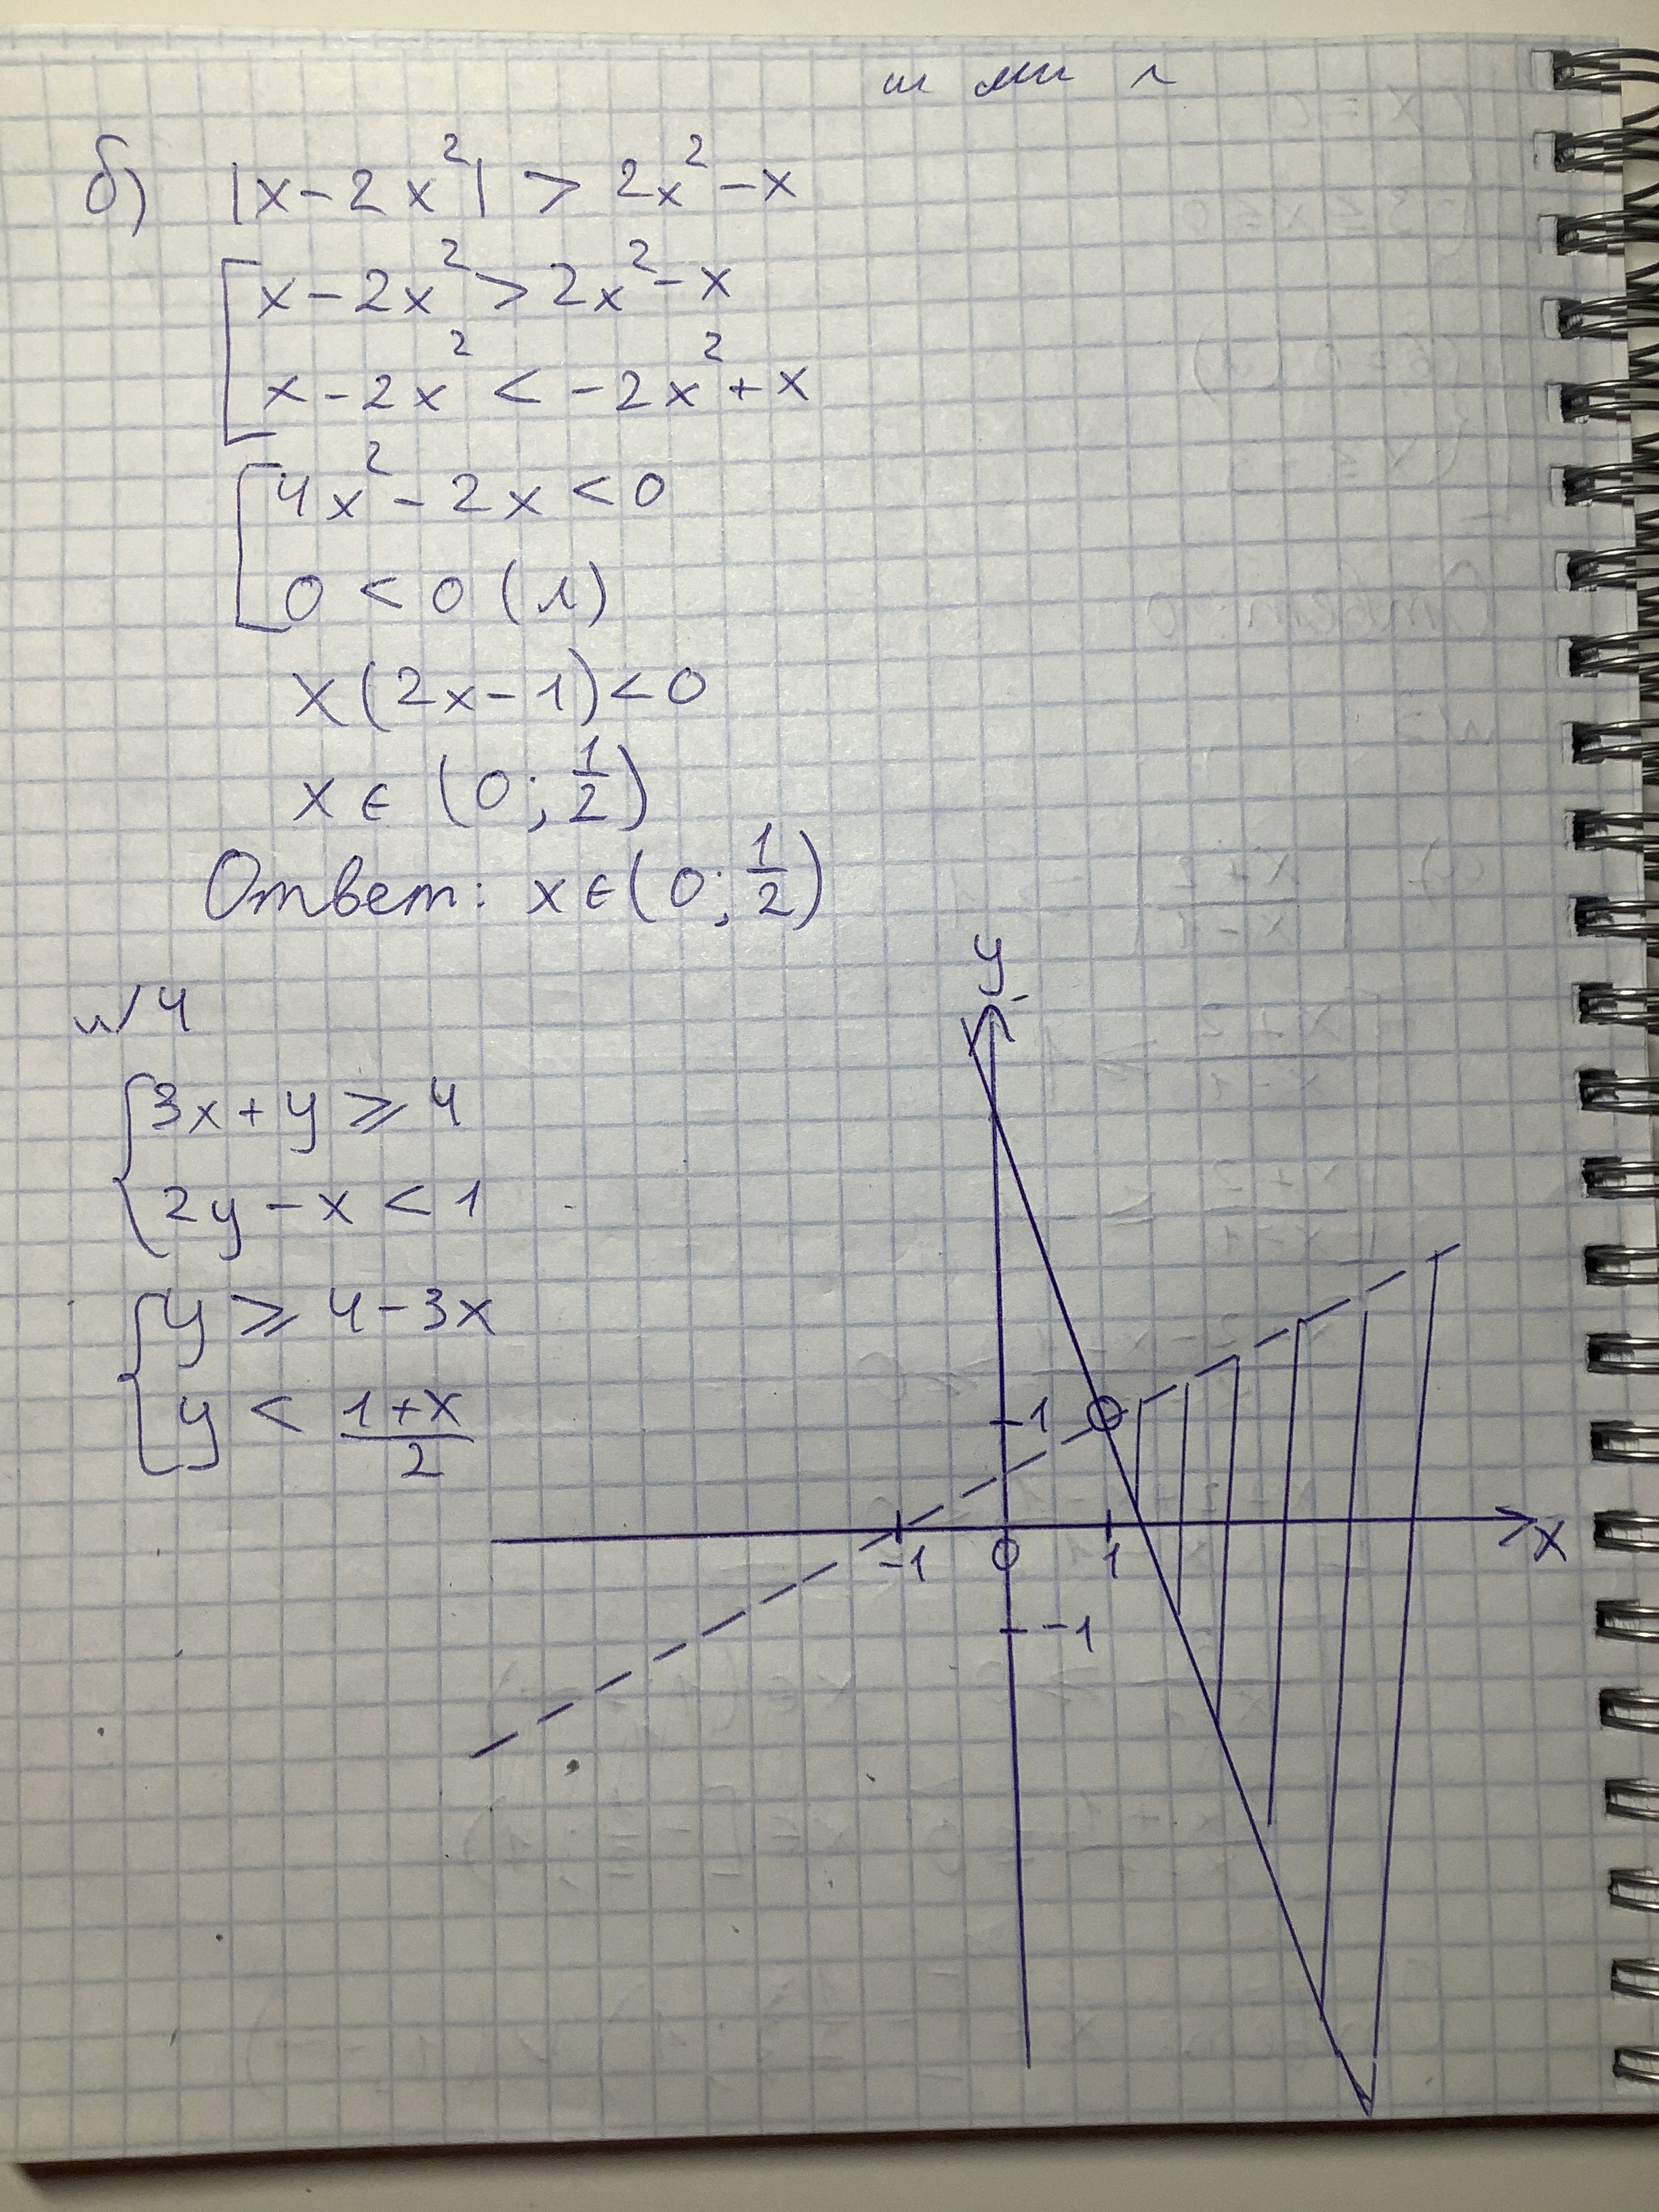 б) |x-2x²| > 2x²-x
x-2x² > 2x²-x
x-2x² < -2x²+x
4x²-2x < 0
0 < 0 (л)
x(2x-1) < 0
x ∈ (0; 1/2)
Ответ: x ∈ (0; 1/2)
№4
3x+y ⩾ 4
2y-x < 1
y ⩾ 4-3x
y < (1+x)/2
y
1
-1 0 1 x
-1